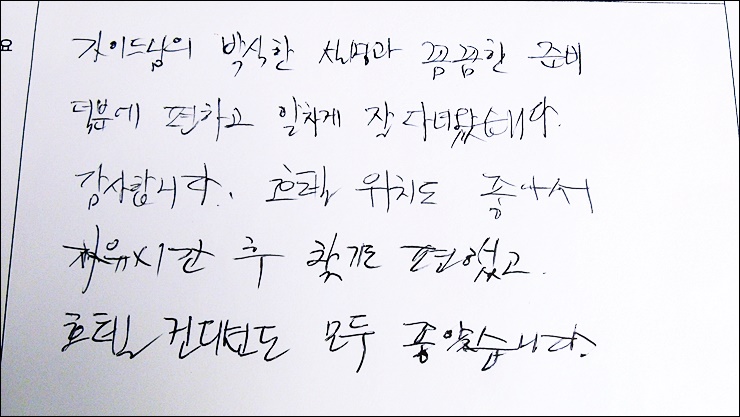 요
가이드님의 박식한 설명과 꼼꼼한 준비
덕분에 편하고 알차게 잘 다녀왔습니다.
감사합니다. 호텔 위치도 좋아서
자유시간 후 찾기도 편했고
호텔 컨디션도 모두 좋았습니다.